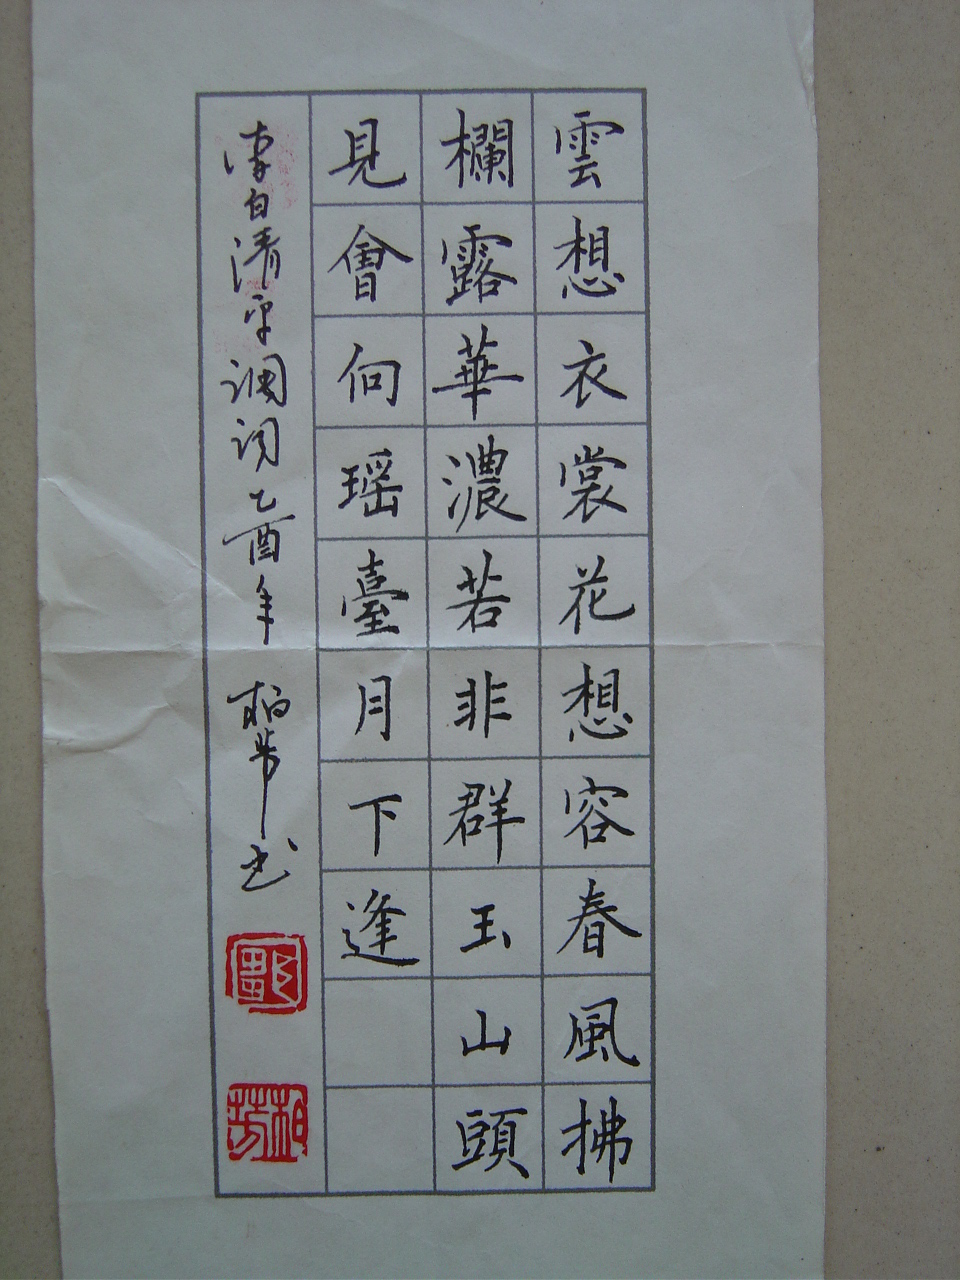 雲想衣裳花想容春風拂
欄露華濃若非群玉山頭
見會向瑶臺月下逢
李白清平调词乙酉年 柏芳书
柏芳